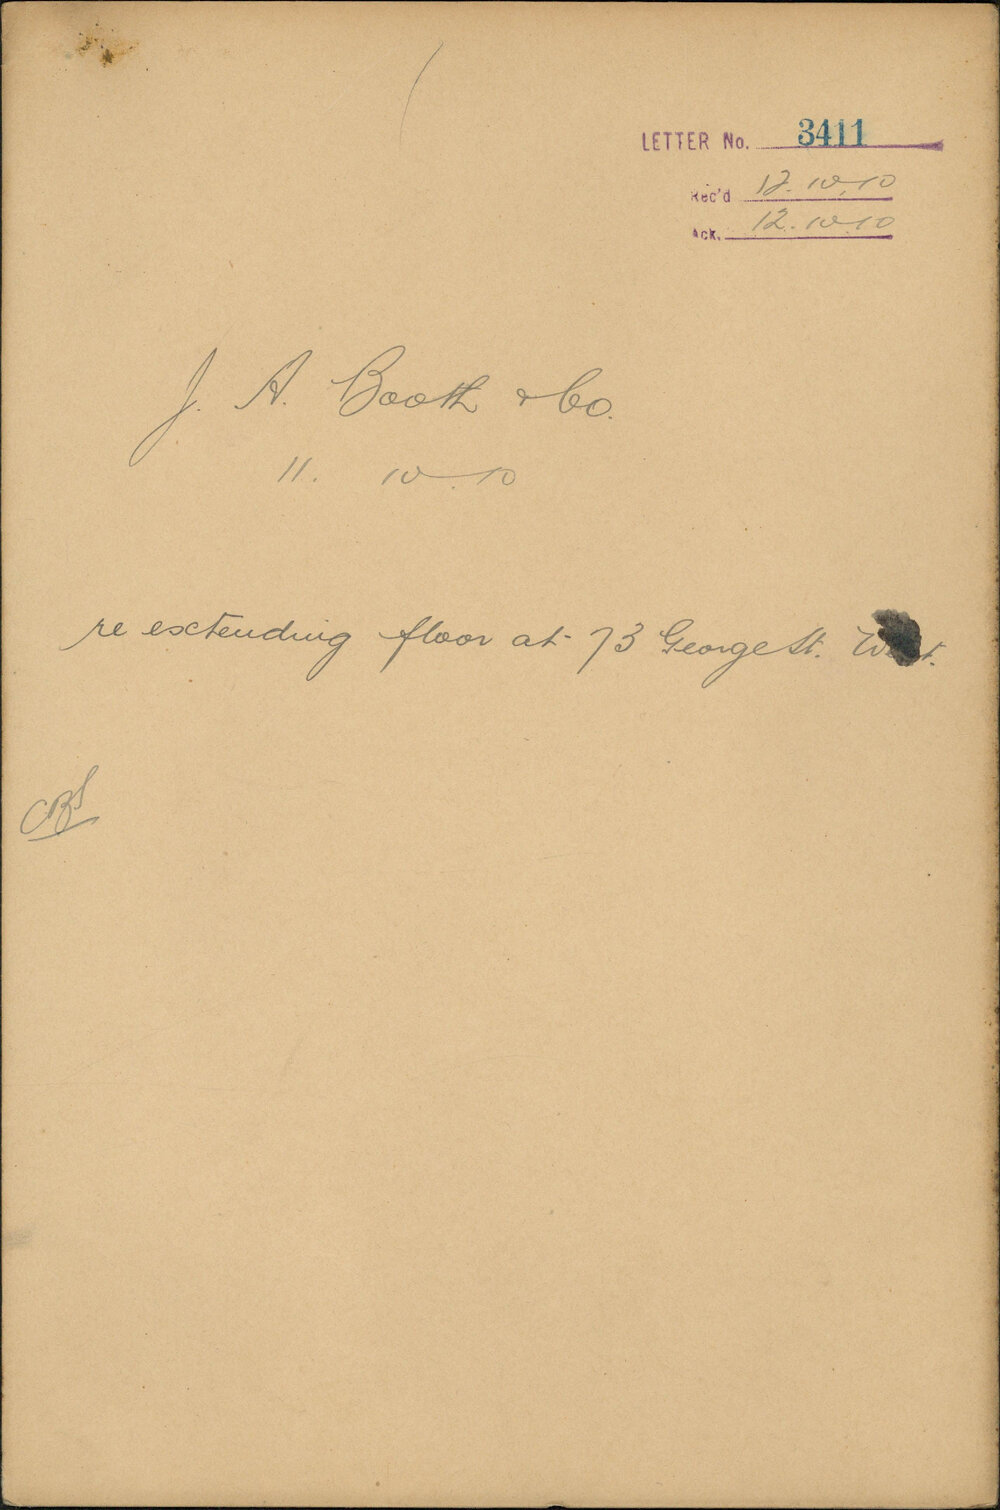 LETTER No. 3411
Rec'd 12.10.10
Ack. 12.10.10
J. A. Booth & Co.
11. 10.10
re extending floor at 73 George St. West.